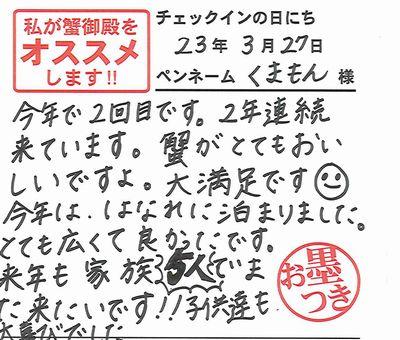 私が蟹御殿を
オススメ
します!!
チェックインの日にち
23年3月27日
ペンネーム くまもん 様
今年で2回目です。2年連続
来ています。蟹がとてもおい
しいですよ。大満足です
今年は、はなれに泊まりました。
とても広くて良かったです。
来年も家族5人でいま
た来たいです!!子供達も
大喜びでした
お墨つき